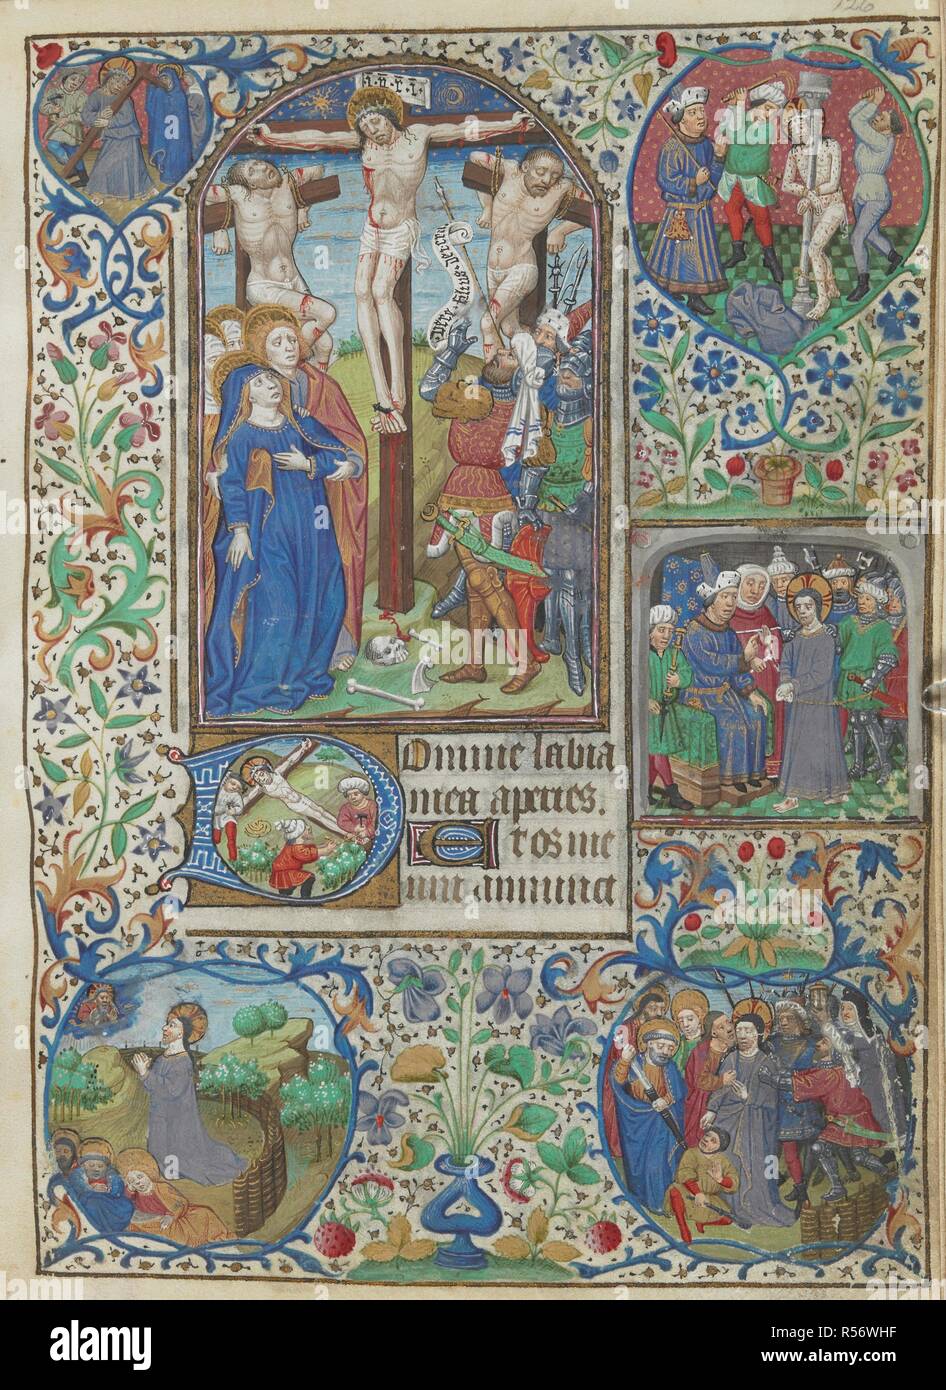 126
·I·N·R·I·
Vere filius dei erat
Domine labia
mea aperies.
Et os me
um annunci
alamy
Image ID: R56WHF
www.alamy.com